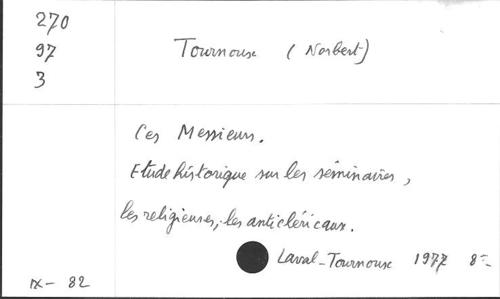 270
97
3
Tournoux (Norbert)
Ces Messieurs.
Etude historique sur les séminaires,
les religieuses, les anticléricaux.
Laval-Tournoux 1977 8°
IX- 82